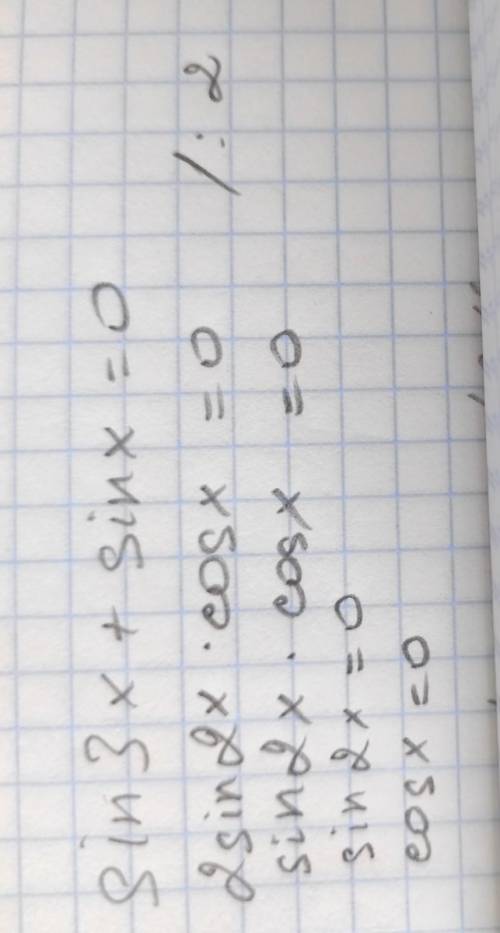 sin3x + sinx = 0
2sin2x · cosx = 0 /: 2
sin2x · cosx = 0
sin2x = 0
cosx = 0